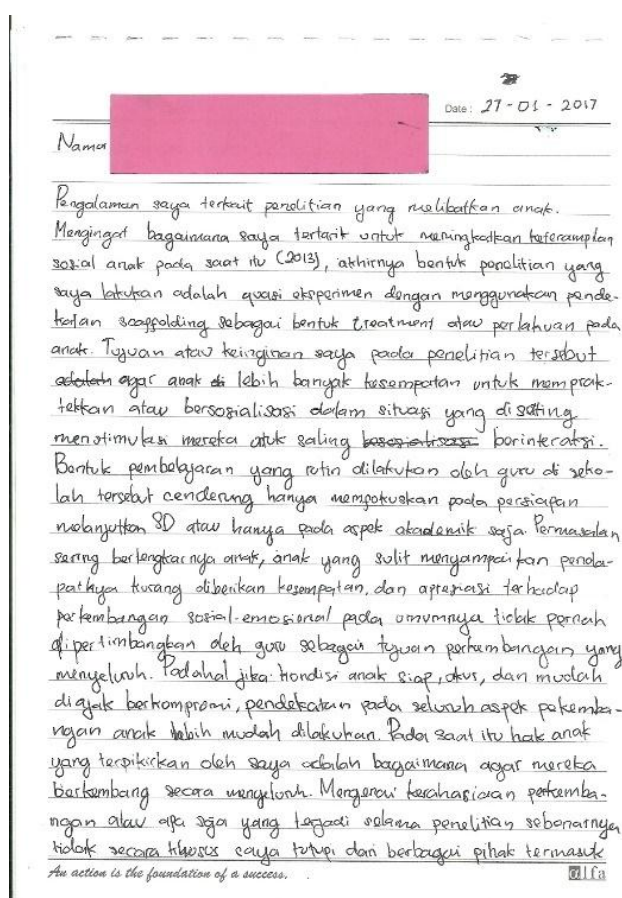 Date: 27-01-2017
Nama
Pengalaman saya terkait penelitian yang melibatkan anak.
Mengingat bagaimana saya tertarik untuk meningkatkan keterampilan
sosial anak pada saat itu (2013), akhirnya bentuk penelitian yang
saya lakukan adalah quasi eksperimen dengan menggunakan pende-
katan scaffolding sebagai bentuk treatment atau perlakuan pada
anak. Tujuan atau keinginan saya pada penelitian tersebut
adalah agar anak di lebih banyak kesempatan untuk memprak-
tekkan atau bersosialisasi dalam situasi yang disetting
menstimulasi mereka untuk saling bersosialisasi berinteraksi.
Bentuk pembelajaran yang rutin dilakukan oleh guru di seko-
lah tersebut cenderung hanya mempokuskan pada persiapan
melanjutkan SD atau hanya pada aspek akademik saja. Permasalan
sering bertengkarnya anak, anak yang sulit menyampaikan penda-
patnya kurang diberikan kesempatan, dan apresiasi terhadap
perkembangan sosial-emosional pada umumnya tidak pernah
dipertimbangkan oleh guru sebagai tujuan perkembangan yang
menyeluruh. Padahal jika kondisi anak siap, fokus, dan mudah
diajak berkompromi, pendekatan pada seluruh aspek pekemba-
ngan anak lebih mudah dilakukan. Pada saat itu hak anak
yang terpikirkan oleh saya adalah bagaimana agar mereka
berkembang secara menyeluruh. Mengenai kerahasiaan perkemba-
ngan atau apa saja yang terjadi selama penelitian sebenarnya
tidak secara khusus saya tutupi dari berbagai pihak termasuk
An action is the foundation of a success.
alfa